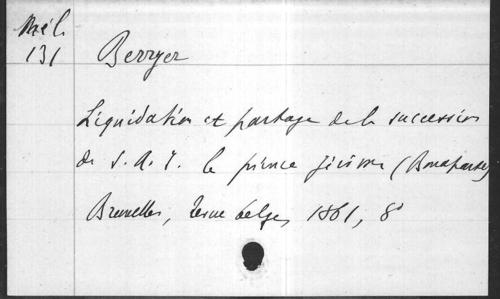 Mél.
131
Berryer
Liquidation et partage de la succession
de S. A. I. le prince Jérôme (Bonaparte)
Bruxelles, revue belge, 1861, 8°